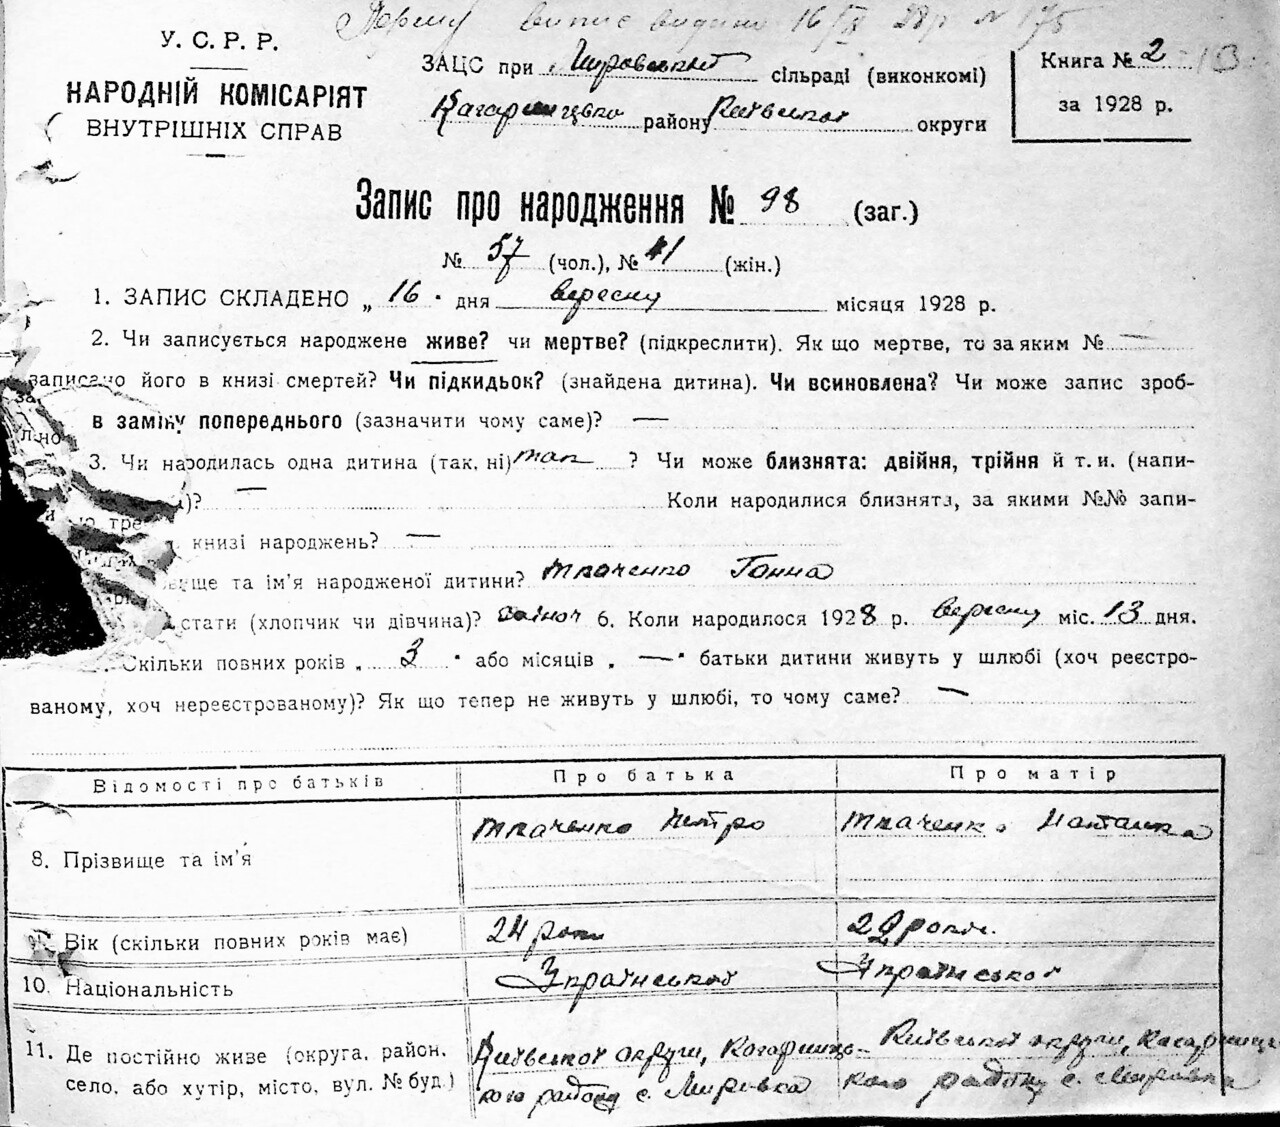 Першу випис видано 16/IX 28 р. № 175
У. С. Р. Р.
НАРОДНІЙ КОМІСАРІЯТ
ВНУТРІШНІХ СПРАВ
ЗАЦС при Мировській сільраді (виконкомі)
Кагарлицько району Київської округи
Книга № 2
за 1928 р.
Запис про народження № 98 (заг.)
№ 57 (чол.), № 41 (жін.)
1. ЗАПИС СКЛАДЕНО „ 16 " дня вересня місяця 1928 р.
2. Чи записується народжене живе? чи мертве? (підкреслити). Як що мертве, то за яким № —
записано його в книзі смертей? Чи підкидьок? (знайдена дитина). Чи всиновлена? Чи може запис зроб-
в заміну попереднього (зазначити чому саме)? —
3. Чи народилась одна дитина (так, ні) так ? Чи може близнята: двійня, трійня й т. и. (напи-
)? — Коли народилися близнята, за якими №№ запи-
книзі народжень? —
ище та ім'я народженої дитини? Ткаченко Ганна
стати (хлопчик чи дівчина)? 6. Коли народилося 1928 р. вересня міс. 13 дня.
Скільки повних років „ 3 " або місяців „ — " батьки дитини живуть у шлюбі (хоч реєстро-
ваному, хоч нереєстрованому)? Як що тепер не живуть у шлюбі, то чому саме? —
Відомості про батьків Про батька Про матір
8. Прізвище та ім'я Ткаченко Петро Ткаченко Наталка
9. Вік (скільки повних років має) 24 роки 22 роки
10. Національність Української Української
11. Де постійно живе (округа, район, Київської округи, Кагарлиць- Київської округи, Кагарлиць
село, або хутір, місто, вул. № буд.) кого району с. Мировка кого району с. Мировка